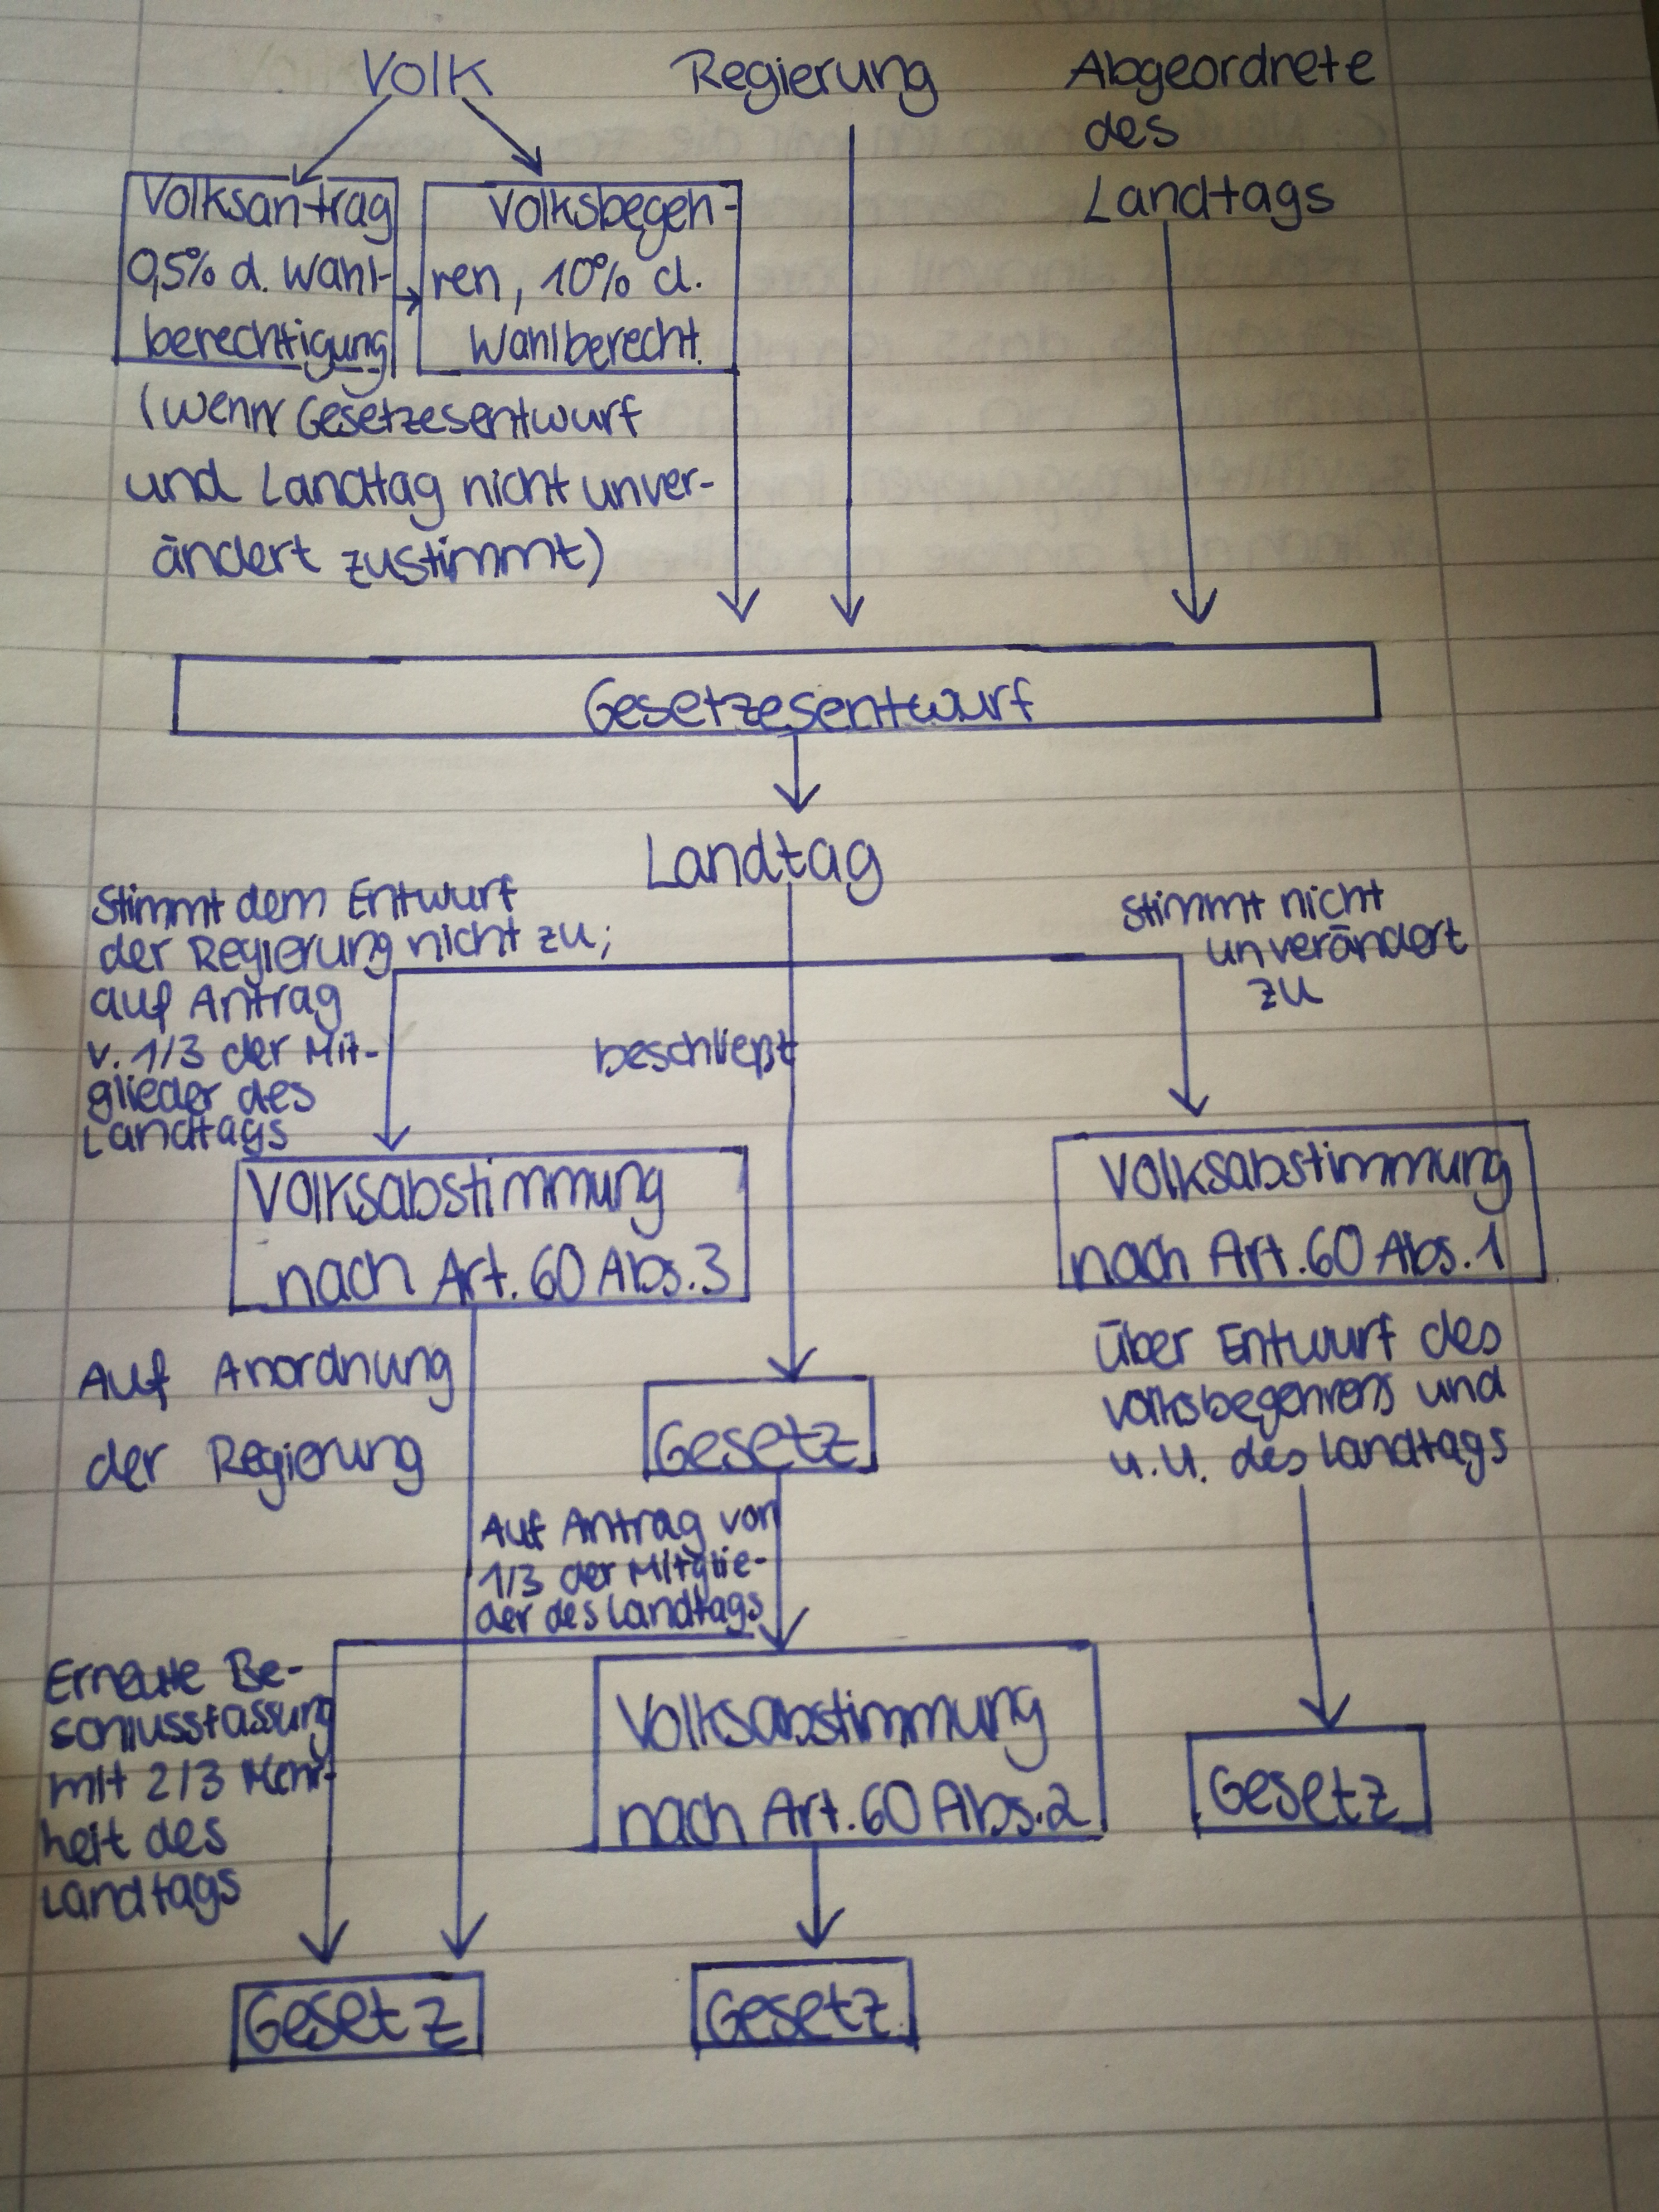 Volk
Regierung
Abgeordnete
des
Landtags
Volksantrag
0,5% d. Wahl-
berechtigung
Volksbegeh-
ren, 10% d.
Wahlberecht.
(wenn Gesetzesentwurf
und Landtag nicht unver-
ändert zustimmt)
Gesetzesentwurf
Landtag
Stimmt dem Entwurf
der Regierung nicht zu;
auf Antrag
v. 1/3 der Mit-
glieder des
Landtags
beschließt
stimmt nicht
unverändert
zu
Volksabstimmung
nach Art. 60 Abs. 3
Volksabstimmung
nach Art. 60 Abs. 1
Auf Anordnung
der Regierung
Gesetz
über Entwurf des
Volksbegehrens und
u.U. des Landtags
Auf Antrag von
1/3 der Mitglie-
der des Landtags
Erneute Be-
schlussfassung
mit 2/3 Mehr-
heit des
Landtags
Volksabstimmung
nach Art. 60 Abs. 2
Gesetz
Gesetz
Gesetz